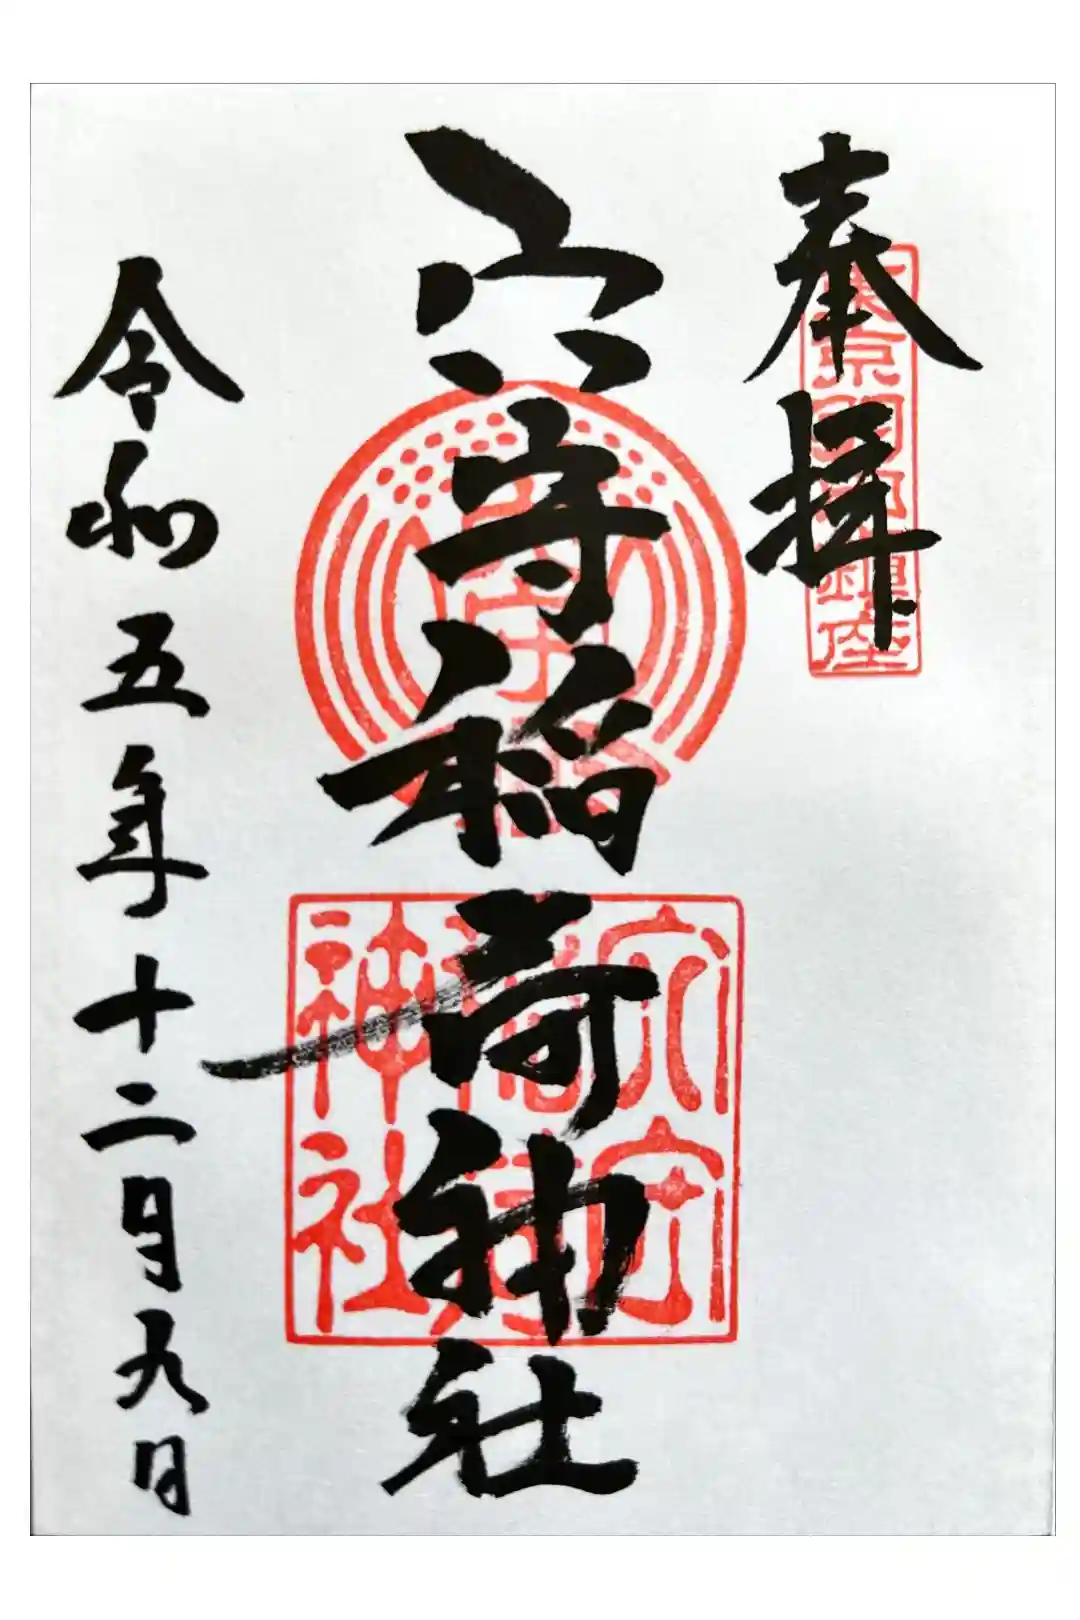 奉拝
東京関門鎮座
穴守稲荷神社
穴守稲荷神社
令和五年十二月九日